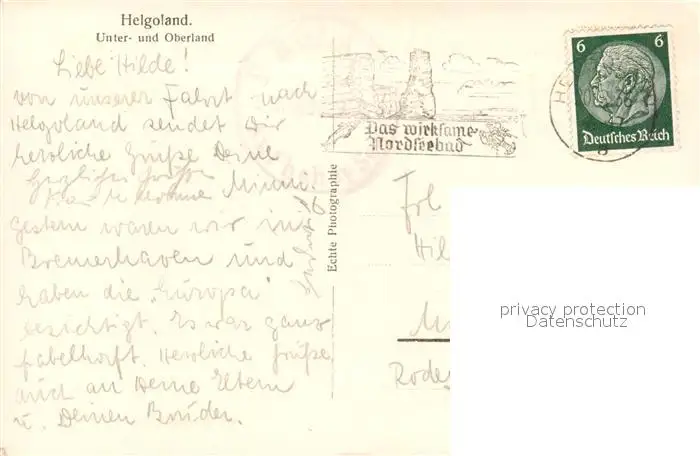 Helgoland.
Unter- und Oberland
Liebe Hilde!
von unserer Fahrt nach
Helgoland sendet Dir
herzliche Grüße Deine
Herzliche Grüße
Gestern waren wir in
Bremerhaven und
haben die „Europa“
besichtigt. Es war ganz
fabelhaft. Herzliche Grüße
auch an Deine Eltern
u. Deinen Bruder.
Echte Photographie
Das wirksame
Nordseebad
6 6
Deutsches Reich
Frl
Hil
Rode
privacy protection
Datenschutz